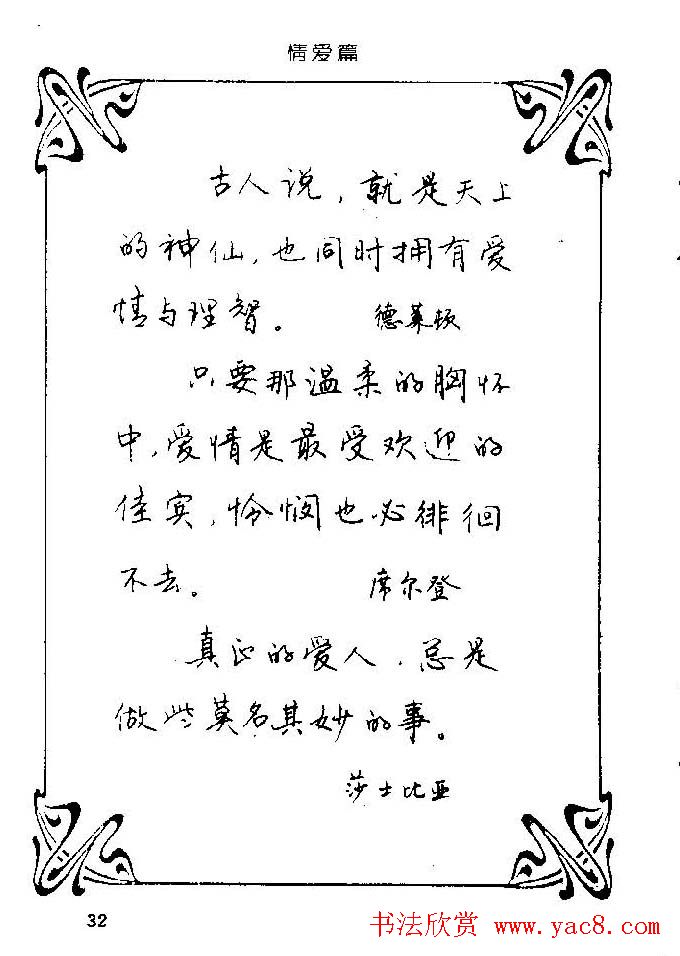 情爱篇
古人说，就是天上
的神仙，也同时拥有爱
情与理智。 德莱顿
只要那温柔的胸怀
中，爱情是最受欢迎的
佳宾，怜悯也必徘徊
不去。 席尔登
真正的爱人，总是
做些莫名其妙的事。
莎士比亚
32
书法欣赏 www.yac8.com